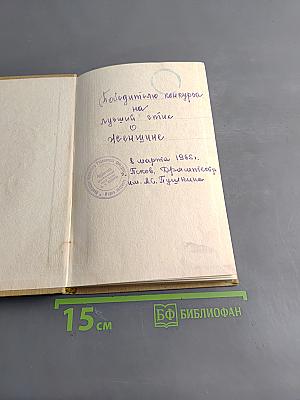 Победителю конкурса
на
лучший стих
о
женщине
8 марта 1966г.
г. Псков, Драмтеатр
им. А.С. Пушкина
15 см
БФ БИБЛИОФАН